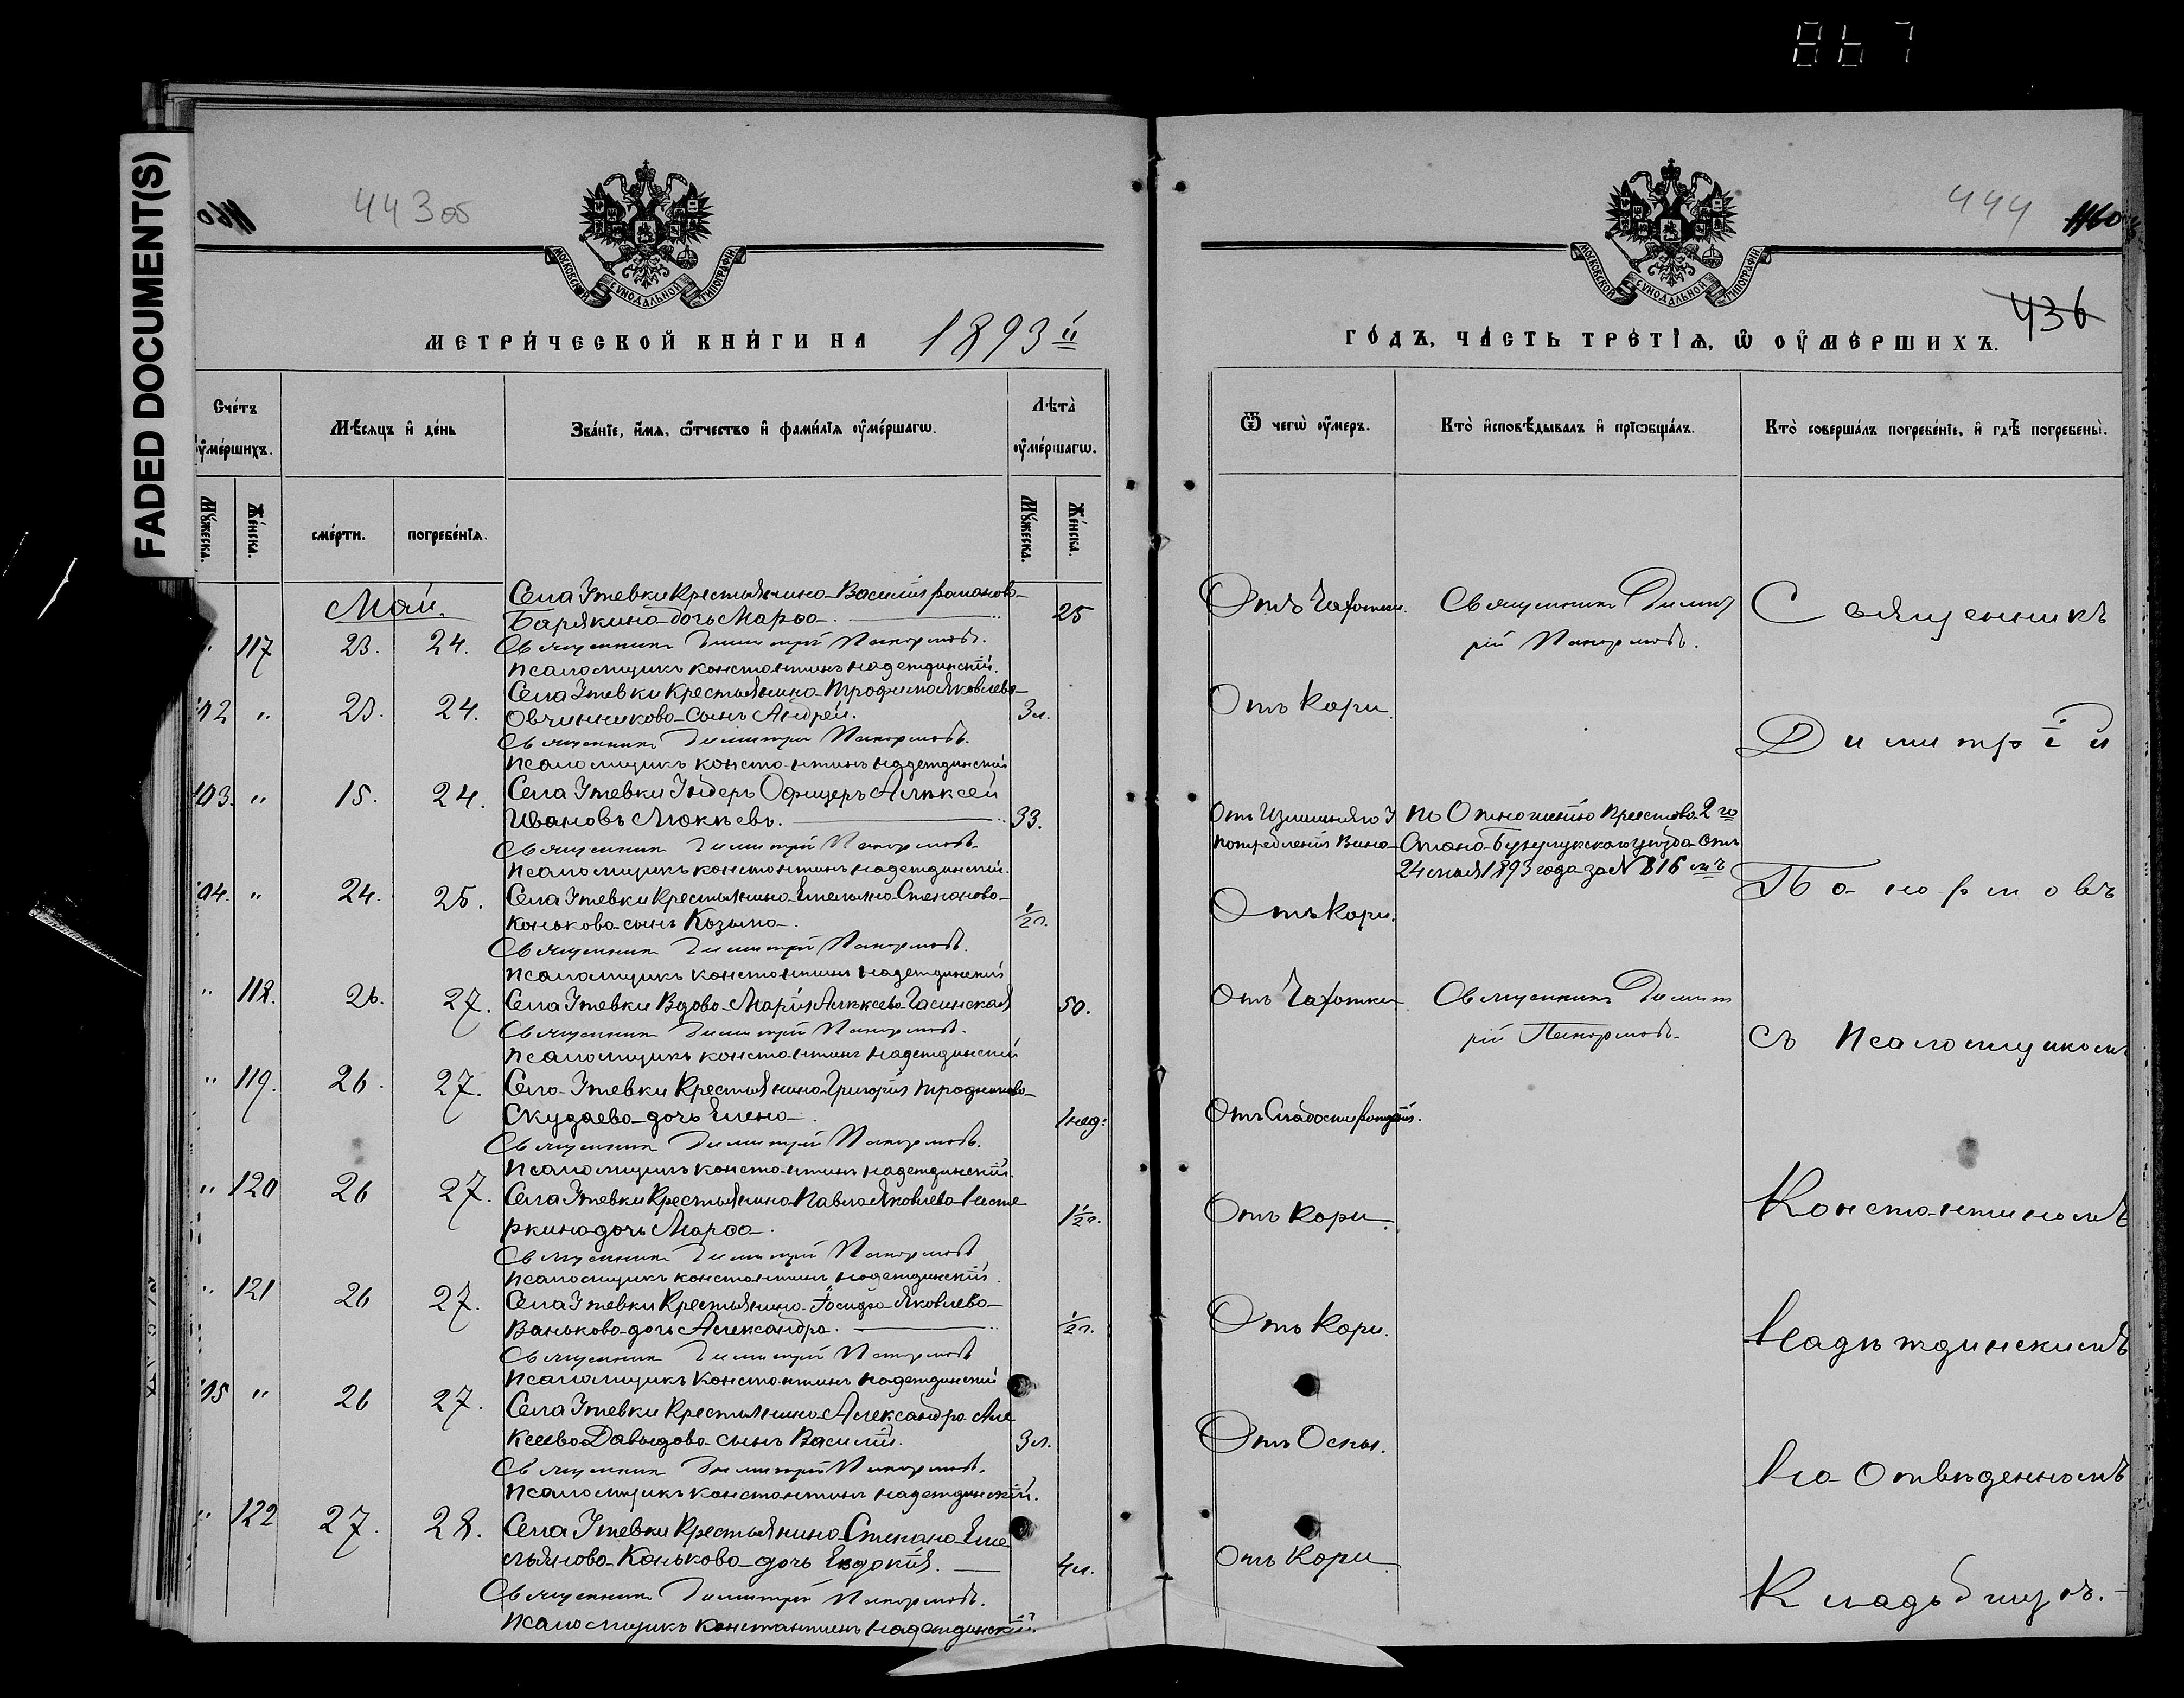 867
FADED DOCUMENT(S)
443 об
МОСКОВСКОЙ СѴНОДАЛЬНОЙ ТИПОГРАФІИ
МЕТРИЧЕСКОЙ КНИГИ НА 1893 й
Счетъ ѹмершихъ.
Мѣсяцъ и день
Званіе, имя, ѿтчество и фамилія ѹмершагѡ.
Лѣта ѹмершагѡ.
Мѹжеска.
Женска.
смерти.
погребенія.
Мѹжеска.
Женска.
Май.
Села Утевки Крестьянина Василія Романова
Барякина дочь Марѳа. 25
" 117 23. 24. Священникъ Димитрій Панормовъ.
Псаломщикъ Константинъ Надеждинскій.
Села Утевки Крестьянина Трофима Яковлева
102 " 23. 24. Овчинникова сынъ Андрей. 3 л.
Священникъ Димитрій Панормовъ.
Псаломщикъ Константинъ Надеждинскій
103. " 15. 24. Села Утевки Ундеръ Офицеръ Алексей
Ивановъ Мокѣевъ. 33.
Священникъ Димитрій Панормовъ.
Псаломщикъ Константинъ Надеждинскій.
104. " 24. 25. Села Утевки Крестьянина Емельяна Степанова
Конькова сынъ Козьма. ½ г.
Священникъ Димитрій Панормовъ.
Псаломщикъ Константинъ Надеждинскій
" 118. 26. 27. Села Утевки Вдова Марія Алексеева 50.
Священникъ Димитрій Панормовъ.
Псаломщикъ Константинъ Надеждинскій
" 119. 26. 27. Села Утевки Крестьянина Григорія Трофимова
Скудаева дочь Елена. 1 нед.
Священникъ Димитрій Панормовъ.
Псаломщикъ Константинъ Надеждинскій.
" 120 26 27. Села Утевки Крестьянина Павла Яковлева Несте
ркина дочь Марѳа. 1½ г.
Священникъ Димитрій Панормовъ
Псаломщикъ Константинъ Надеждинскій.
" 121 26 27. Села Утевки Крестьянина Яковлева
Ванькова дочь Александра. ½ г.
Священникъ Димитрій Панормовъ
Псаломщикъ Константинъ Надеждинскій
105 " 26 27. Села Утевки Крестьянина Александра Але
ксеева Давыдова сынъ Василій. 3 л.
Священникъ Димитрій Панормовъ.
Псаломщикъ Константинъ Надеждинскій.
" 122 27. 28. Села Утевки Крестьянина Степана Еме
льянова Конькова дочь Евдокія. 4 л.
Священникъ Димитрій Панормовъ.
Псаломщикъ Константинъ Надеждинскій.
444
МОСКОВСКОЙ СѴНОДАЛЬНОЙ ТИПОГРАФІИ
436
ГОДЪ, ЧАСТЬ ТРЕТІЯ, Ѡ ОУМЕРШИХЪ.
Ѿ чегѡ ѹмеръ.
Кто исповѣдывалъ и пріѡбщалъ.
Кто совершалъ погребеніе, и гдѣ погребены.
Отъ Чахотки. Священникъ Димит
рій Панормовъ.
Отъ Кори.
Отъ Излишняго У
потребленія Вина
По Отношенію Пристава 2го
Стана Бузулукскаго уѣзда отъ
24 мая 1893 года за № 816 мъ
Отъ Кори.
Отъ Чахотки Священникъ Димит
рій Панормовъ.
Отъ Слабости рожденія.
Отъ Кори.
Отъ Кори.
Отъ Оспы.
Отъ Кори
Священникъ
Димитрій
Панормовъ
съ Псаломщикомъ
Константиномъ
Надѣждинскимъ
На Отвѣденномъ
Кладьбищѣ.